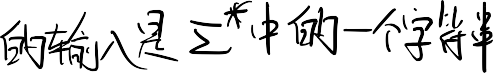 的输入是 Σ* 中的一个字符串